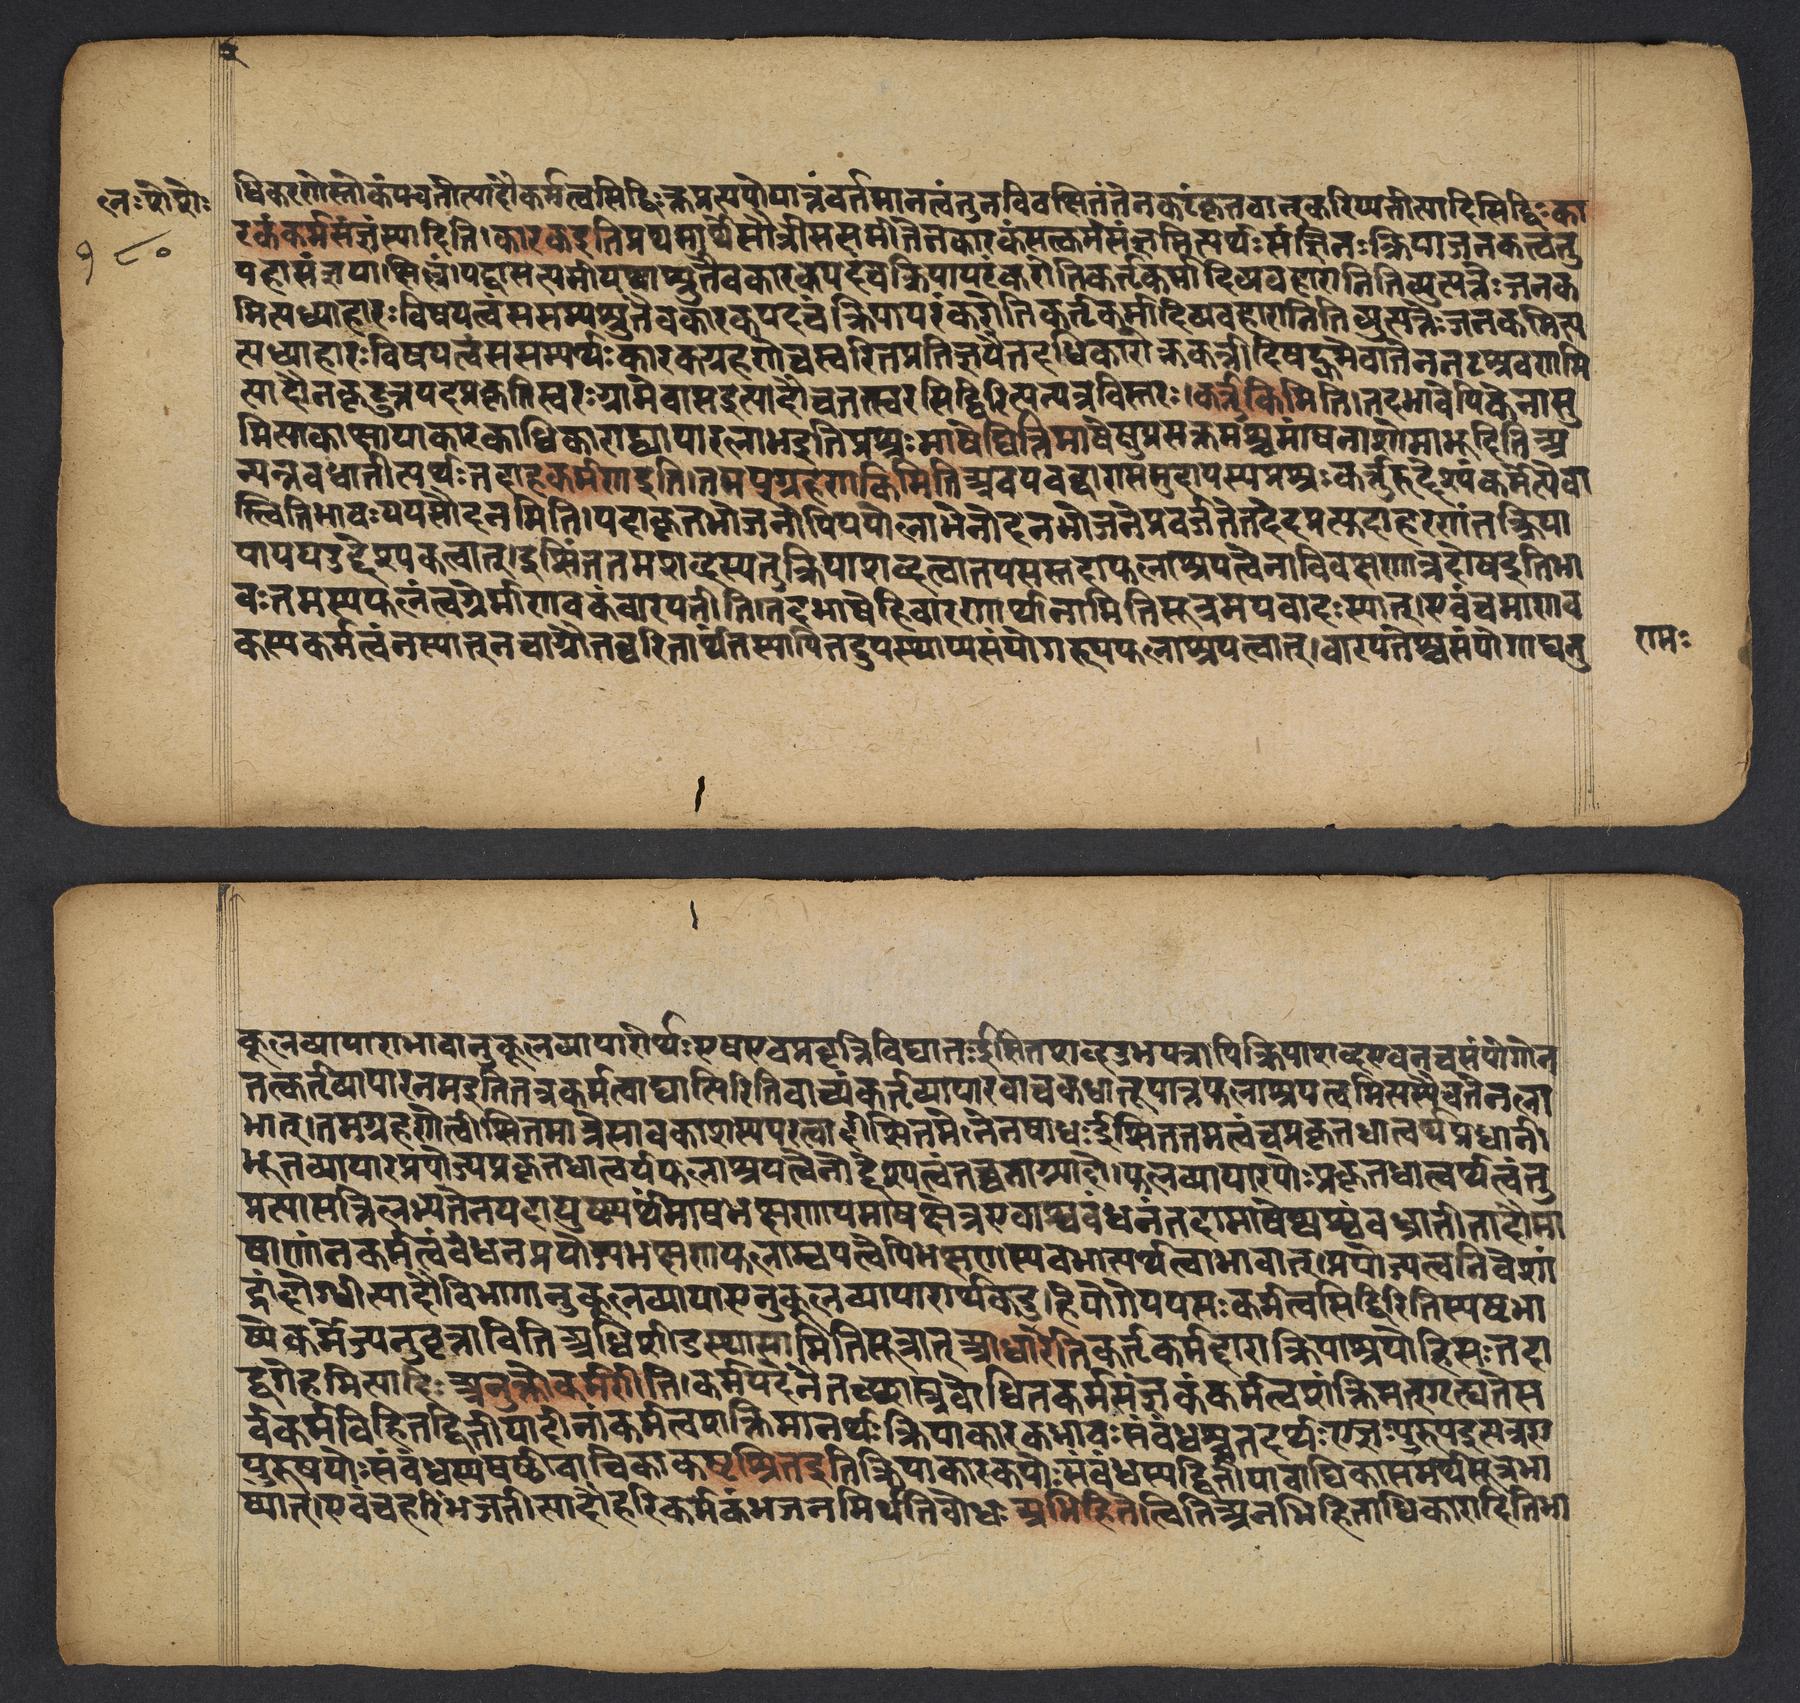 ल्नःशेशेः
१८०
धिकरणेस्तोकंपचतीत्यादौकर्मत्वसिद्धिःक्तप्रत्ययोपात्तंवर्तमानत्वंतुनविवक्षितंतेनकटंकृतवान्करिष्यतीत्यादिसिद्धिःका
रकंकर्मसंज्ञंस्यादिति।कारकइतिप्रथमार्थेसौत्रीससमीतेनकारकंसत्कर्मसंज्ञमित्यर्थःसंज्ञिनःक्रियाजनकत्वंतु
महासंज्ञयाक्षिप्तं।यद्वासत्यमीयथाश्रुतैवकारकपदंचक्रियापरंकरोतिकर्तृकर्मादिव्यवहारानितिव्युत्पत्तेःजनक
मित्यध्याहारःविषयत्वंससम्यर्थश्रुतैवकारकपदंचक्रियापरंकरोतिकर्तृकर्मादिव्यवहारानितिव्युत्पत्तेःजनकमित्य
त्यध्याहारःविषयत्वंससम्यर्थःकारकग्रहणेचस्वरितप्रतिज्ञयैतदधिकारोक्तकर्त्रादिषट्कमेवातेननटश्रवणमि
त्यादौनकृदुत्तरपदप्रकृतिस्वरःग्रामेवासइत्यादौचनतत्स्वरसिद्धिरित्यन्यत्रविस्तरः।कर्तृकिमिति।तदभावेपिकेनाप्तु
मित्याकाङ्क्षायाकारकाधिकाराद्व्यापारलाभइतिप्रश्नःमाषेष्विति।माषेषुप्रसक्तमश्वंमाषनाशोमाभूदितिअ
न्यत्रबध्नातीत्यर्थःतदाहकर्मणइति।तमप्ग्रहणंकिमितिअवयवद्वारासमुदायस्यप्रश्नःकर्तुरुद्देश्यंकर्मेत्येवा
स्त्वितिभावःपयसौदनमिति।यदाकृतभोजनोपिपयोलाभेनौदनभोजनेप्रवर्ततेतदेदंप्रत्युदाहरणंतत्क्रिया
यांपयउद्देश्यकत्वात्।ईप्सिततमशब्दस्यतुक्रियाशब्दत्वात्पयसस्तदाफलाश्रयत्वेनाविवक्षणान्नदोषइतिभा
वःतमस्यफलंत्वग्नेर्माणवकंवारयतीति।तदभाषेहिवारणार्थानामितिसूत्रमपवादःस्यात्।एवंचमाणव
कस्यकर्मत्वंनस्यात्नचाग्नौतच्चरितार्थंतस्यापितद्रुपस्याप्यसंयोगरूपफलाश्रयत्वात्।वारयतेश्चसंयोगाघनु
रामः
कूलव्यापाराभावानुकूलव्यापारोर्थःएषएवप्रवृत्तिविघातःईप्सितशब्दउभयत्रापिक्रियाशब्दएवनचसंयोगेन
तत्कर्तृव्यापारनमइतितत्रकर्मत्वाघाप्तिरितिवाच्यंकर्तृव्यापारवाचकधातूपात्तफलाश्रयत्वमित्यस्यैवतेनला
भात्।तमग्रहणेत्वीप्सितमात्रेसावकाशस्यपरत्वादीप्सितमेनेनबाधःईप्सिततमत्वंचप्रकृतधात्वर्थप्रधानी
भूतव्यापारप्रयोज्यप्रकृतधात्वर्थफलाश्रयत्वेनोद्देश्यत्वंतच्चताम्रादौ।फलव्यापारयोःप्रकृतधात्वर्थत्वंतु
प्रत्यासत्तिलभ्यंतेनयदापुष्ट्यर्थंमाषभक्षणायमाषक्षेत्रएवाश्वबंधनंतदामाषेष्वश्वंबध्नातीतादौमा
षाणांनकर्मत्वंबंधनप्रयोज्यभक्षणफलाश्रयत्वेपिभक्षणस्यबधात्यर्थत्वाभावात्।प्रयोज्यत्वनिवेशा
द्गांदोग्धीत्यादौविभागानुकूलव्यापारानुकूलव्यापारार्थकदुहियोगेपयसःकर्मत्वसिद्धिरितिस्पष्टंभा
ष्येकर्मेत्यनुवृत्तावितिअधिशीङ्स्थासामितिसूत्रात्आधारेतिकर्तृकर्मद्वाराक्रियाश्रयोहिसःतदा
द्धृगेहमित्यादिःअनुक्तेकर्मणीति।कर्मपदेनैतच्छास्त्रबोधितकर्मसंज्ञकंकर्मत्वशक्तिमत्गृह्यतेस
र्वकर्मविहितद्वितीयादीनांकर्मत्वशक्तिमानर्थःक्रियाकारकभावःसंबंधश्चतदर्थःराज्ञःपुरुषइत्यत्ररा
पुरुषयोःसंबंधस्यषष्ठीवाचिकाकष्टंश्रितइतिक्रियाकारकयोःसंबंधस्यद्वितीयावाचिकासमर्थसूत्रभा
ष्यात्।एवंचहरिंभजतीत्यादौहरिकर्मकंभजनमिर्थतिबोधःअभिहितेत्वितिअनभिहिताधिकारादितिभा